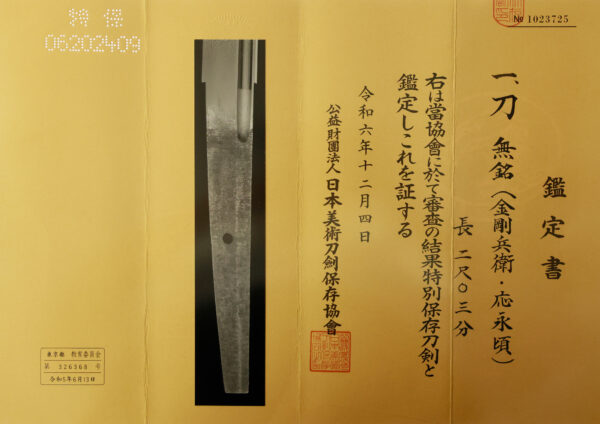 № 1023725
鑑定書
一、刀 無銘(金剛兵衛・応永頃)
長 二尺〇三分
右は當協會に於て審査の結果特別保存刀剣と
鑑定しこれを証する
令和六年十二月四日
公益財團法人 日本美術刀劍保存協會
特保
06202409
東京都 教育委員会
第 326368 号
令和5年6月13日